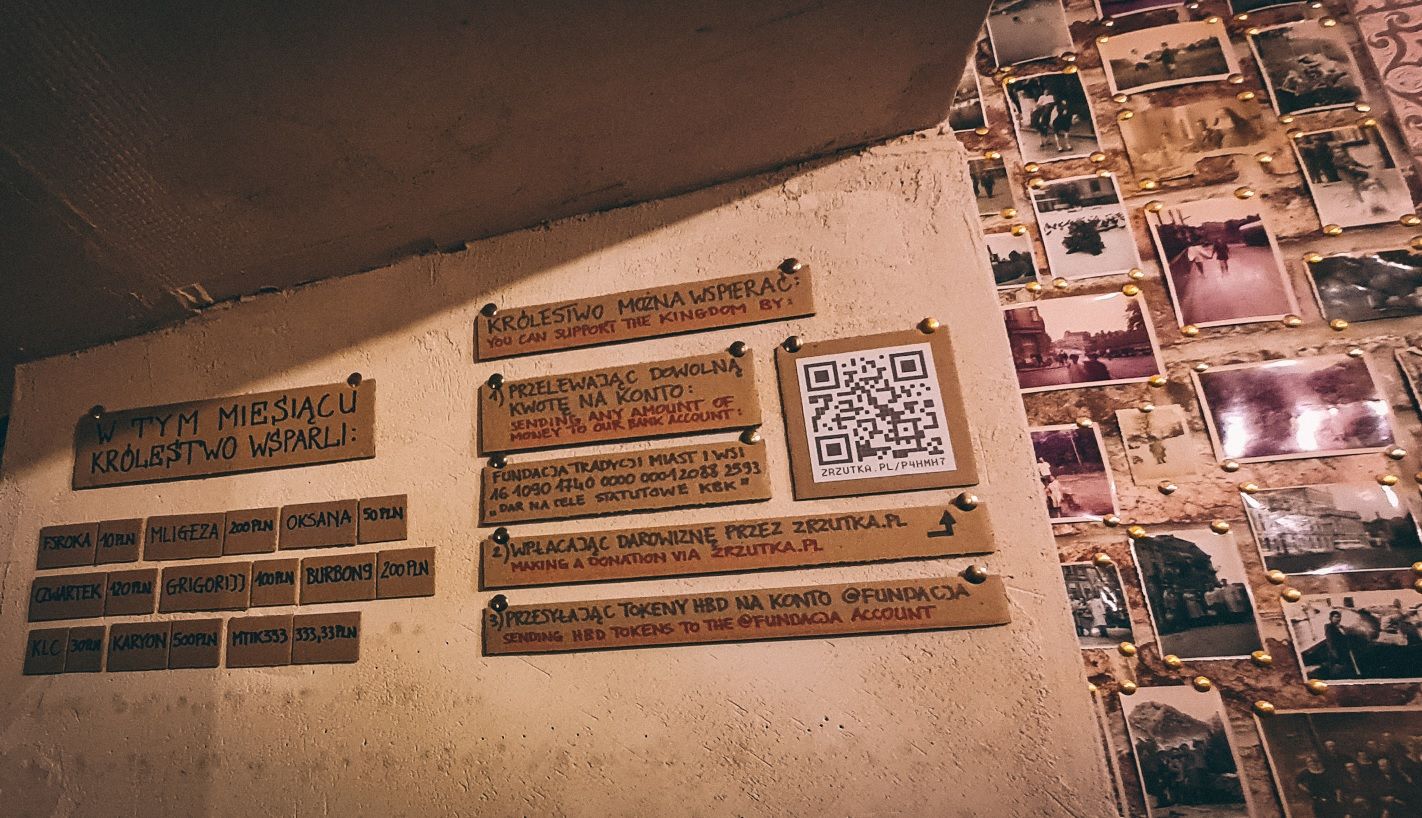 W TYM MIESIĄCU
KRÓLESTWO WSPARLI:
FSROKA 10PLN MLIGEZA 200PLN OKSANA 50PLN
CZWARTEK 120PLN GRIGORIJJ 100PLN BURBON9 200PLN
KLC 30PLN KARYON 500PLN MTIK333 333,33PLN
KRÓLESTWO MOŻNA WSPIERAĆ:
YOU CAN SUPPORT THE KINGDOM BY:
1) PRZELEWAJĄC DOWOLNĄ
KWOTĘ NA KONTO:
SENDING ANY AMOUNT OF
MONEY TO OUR BANK ACCOUNT:
FUNDACJA TRADYCJI MIAST I WSI
16 1090 1740 0000 0001 2088 2593
„DAR NA CELE STATUTOWE KBK"
ZRZUTKA.PL/P4HMH7
2) WPŁACAJĄC DAROWIZNĘ PRZEZ ZRZUTKA.PL
MAKING A DONATION VIA ZRZUTKA.PL
3) PRZESYŁAJĄC TOKENY HBD NA KONTO @FUNDACJA
SENDING HBD TOKENS TO THE @FUNDACJA ACCOUNT